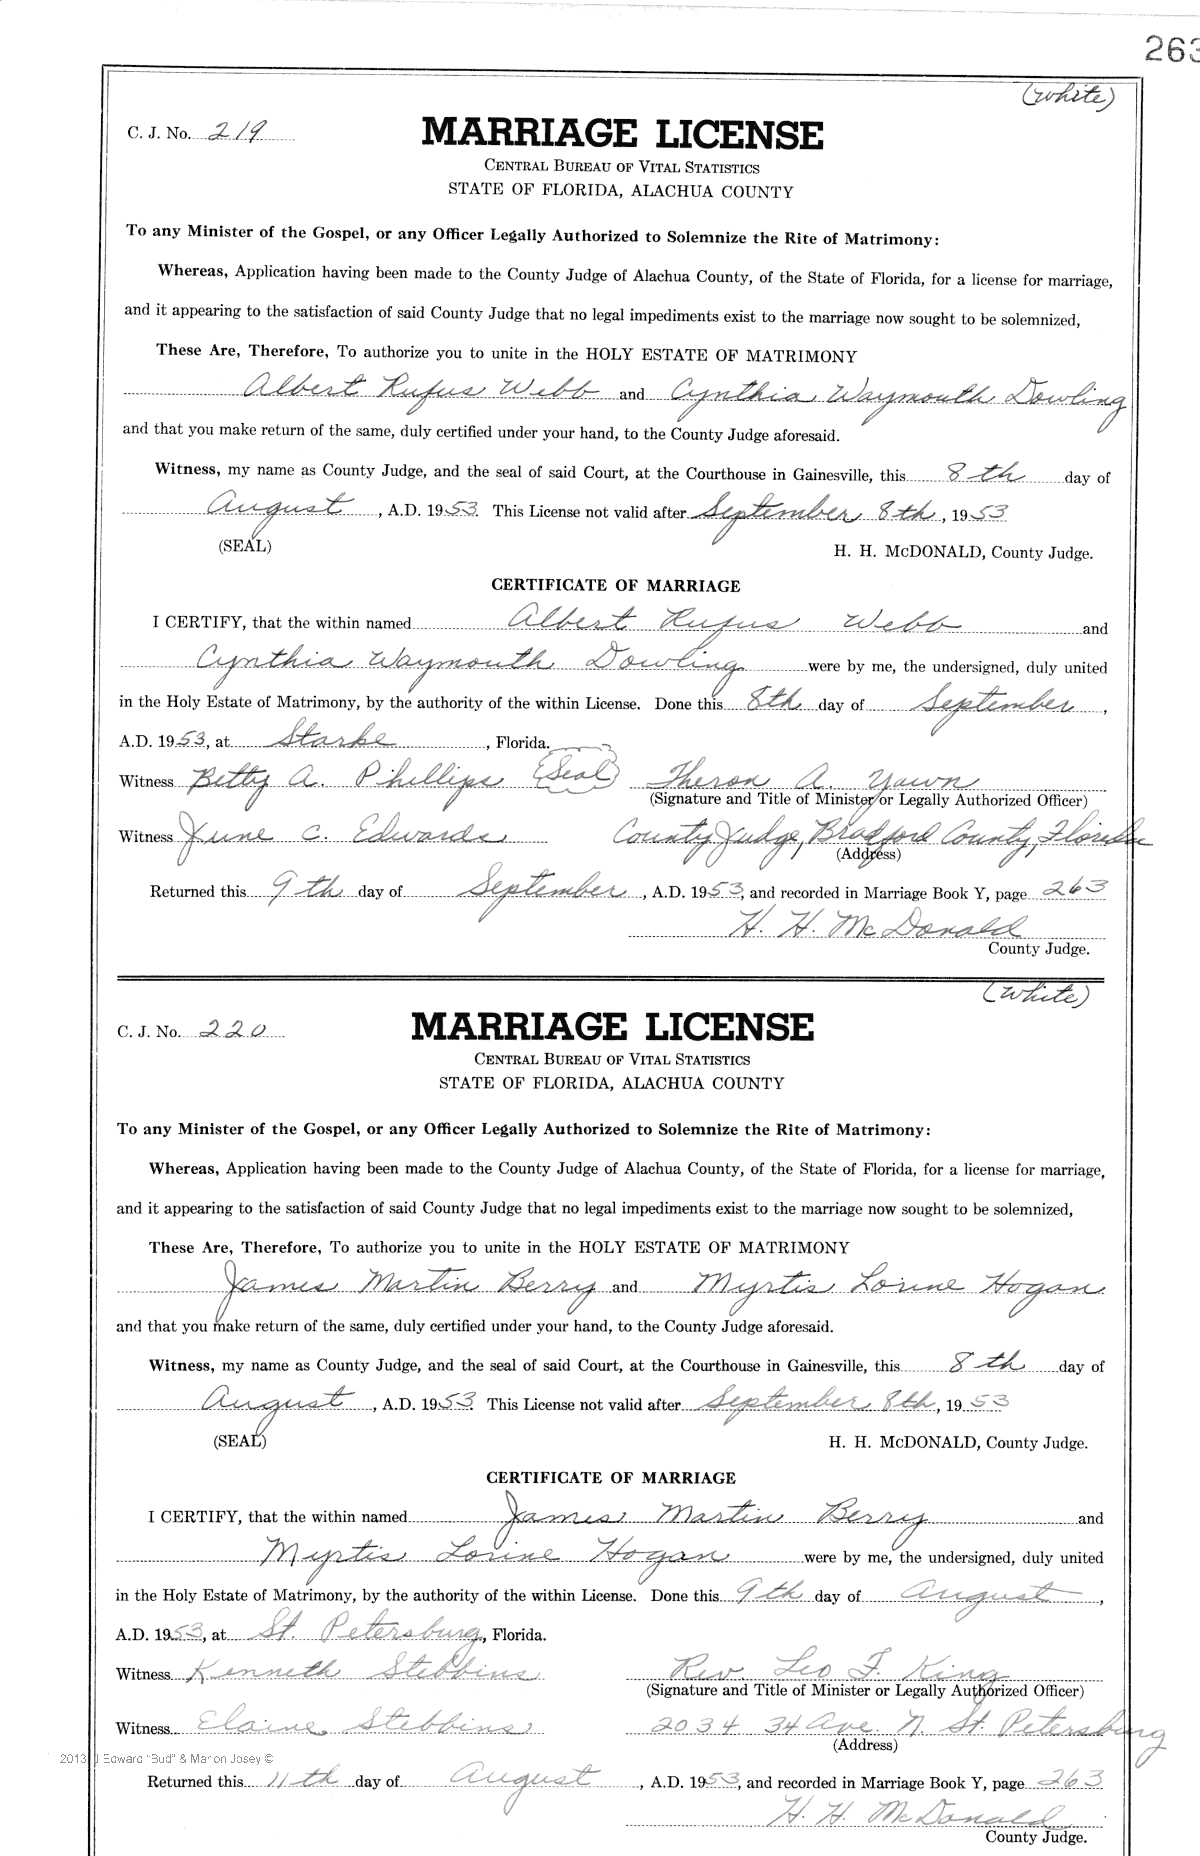 263
(White)
C. J. No. 219
MARRIAGE LICENSE
CENTRAL BUREAU OF VITAL STATISTICS
STATE OF FLORIDA, ALACHUA COUNTY
To any Minister of the Gospel, or any Officer Legally Authorized to Solemnize the Rite of Matrimony:
Whereas, Application having been made to the County Judge of Alachua County, of the State of Florida, for a license for marriage,
and it appearing to the satisfaction of said County Judge that no legal impediments exist to the marriage now sought to be solemnized,
These Are, Therefore, To authorize you to unite in the HOLY ESTATE OF MATRIMONY
Albert Rufus Webb and Cynthia Waymouth Dowling
and that you make return of the same, duly certified under your hand, to the County Judge aforesaid.
Witness, my name as County Judge, and the seal of said Court, at the Courthouse in Gainesville, this 8th day of
August, A.D. 1953. This License not valid after September 8th, 1953
(SEAL) H. H. McDONALD, County Judge.
CERTIFICATE OF MARRIAGE
I CERTIFY, that the within named Albert Rufus Webb and
Cynthia Waymouth Dowling were by me, the undersigned, duly united
in the Holy Estate of Matrimony, by the authority of the within License. Done this 8th day of September,
A.D. 1953, at Starke, Florida.
Witness Betty A. Phillips (Seal) Theron A. Yawn
(Signature and Title of Minister or Legally Authorized Officer)
Witness June C. Edwards County Judge, Bradford County, Florida
(Address)
Returned this 9th day of September, A.D. 1953, and recorded in Marriage Book Y, page 263
H. H. McDonald
County Judge.
(White)
C. J. No. 220
MARRIAGE LICENSE
CENTRAL BUREAU OF VITAL STATISTICS
STATE OF FLORIDA, ALACHUA COUNTY
To any Minister of the Gospel, or any Officer Legally Authorized to Solemnize the Rite of Matrimony:
Whereas, Application having been made to the County Judge of Alachua County, of the State of Florida, for a license for marriage,
and it appearing to the satisfaction of said County Judge that no legal impediments exist to the marriage now sought to be solemnized,
These Are, Therefore, To authorize you to unite in the HOLY ESTATE OF MATRIMONY
James Martin Berry and Myrtis Lorine Hogan
and that you make return of the same, duly certified under your hand, to the County Judge aforesaid.
Witness, my name as County Judge, and the seal of said Court, at the Courthouse in Gainesville, this 8th day of
August, A.D. 1953. This License not valid after September 8th, 1953
(SEAL) H. H. McDONALD, County Judge.
CERTIFICATE OF MARRIAGE
I CERTIFY, that the within named James Martin Berry and
Myrtis Lorine Hogan were by me, the undersigned, duly united
in the Holy Estate of Matrimony, by the authority of the within License. Done this 9th day of August,
A.D. 1953, at St. Petersburg, Florida.
Witness Kenneth Stebbins Rev. Leo F. King
(Signature and Title of Minister or Legally Authorized Officer)
Witness Elaine Stebbins 2034 34 Ave. N St. Petersburg
(Address)
2013 J Edward "Bud" & Marion Josey ©
Returned this 11th day of August, A.D. 1953, and recorded in Marriage Book Y, page 263
H. H. McDonald
County Judge.